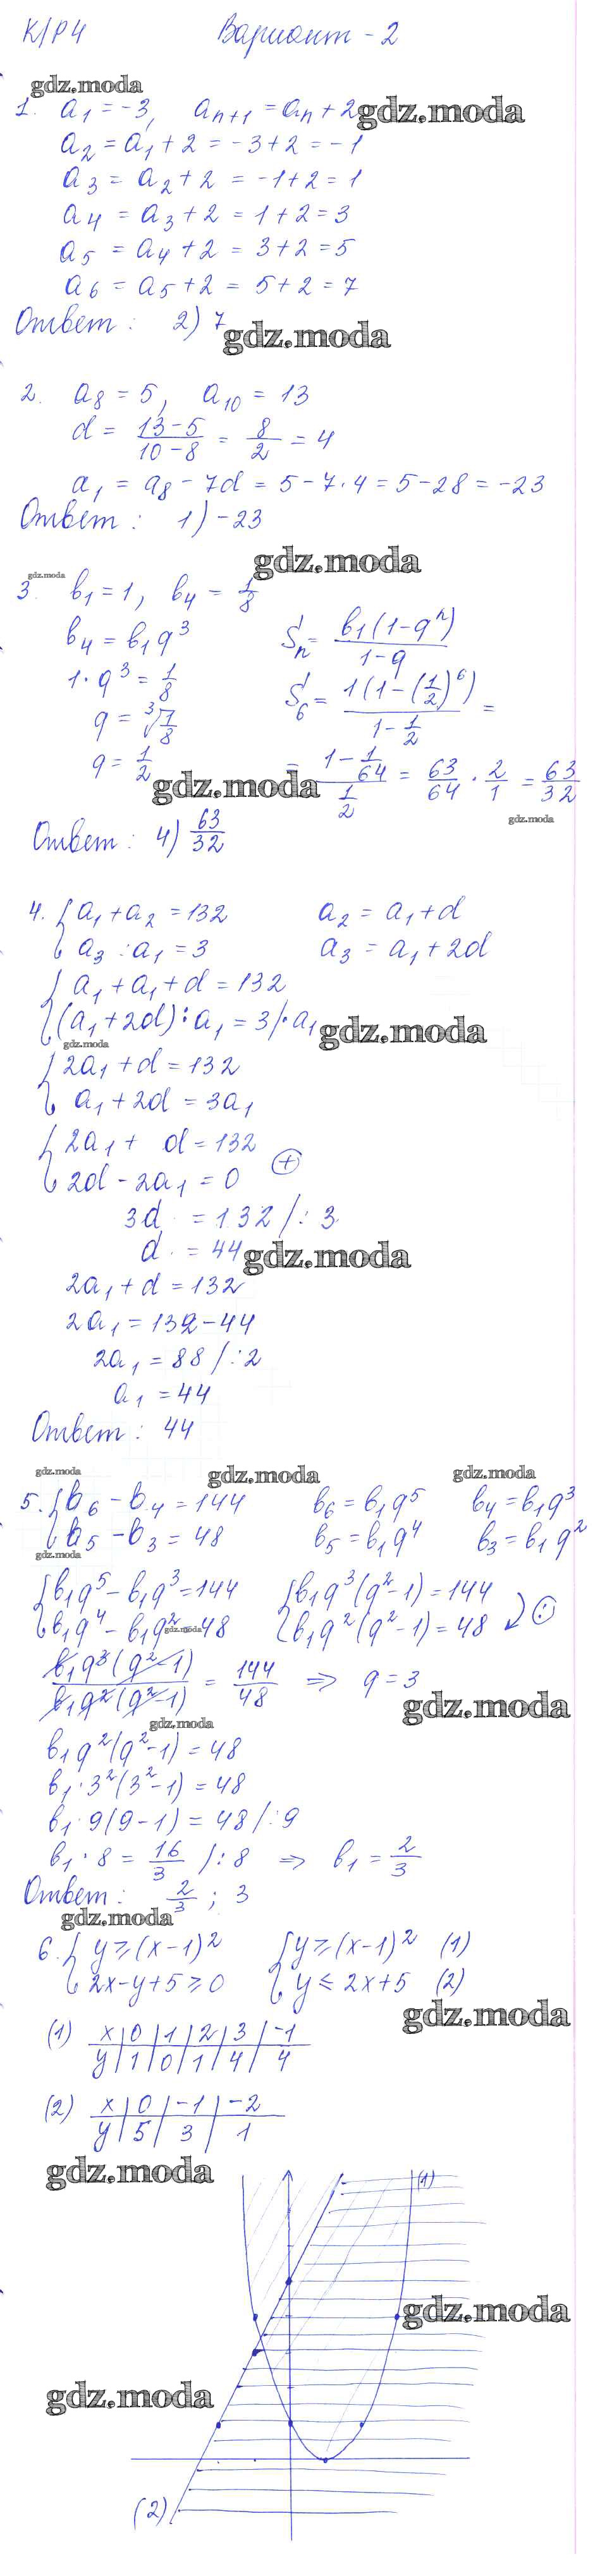 К/Р4 Вариант - 2
gdz.moda
1. a₁ = -3, aₙ₊₁ = aₙ + 2 gdz.moda
a₂ = a₁ + 2 = -3+2 = -1
a₃ = a₂ + 2 = -1+2 = 1
a₄ = a₃ + 2 = 1+2 = 3
a₅ = a₄ + 2 = 3+2 = 5
a₆ = a₅ + 2 = 5+2 = 7
Ответ: 2) 7
gdz.moda
2. a₈ = 5, a₁₀ = 13
d = (13-5)/(10-8) = 8/2 = 4
a₁ = a₈ - 7d = 5-7·4 = 5-28 = -23
Ответ: 1) -23
gdz.moda
gdz.moda
3. b₁ = 1, b₄ = 1/8
b₄ = b₁q³ Sₙ = b₁(1-qⁿ)/(1-q)
1·q³ = 1/8 S₆ = 1(1-(1/2)⁶)/(1-1/2) =
q = ³√(1/8)
q = 1/2 = (1-1/64)/(1/2) = 63/64 · 2/1 = 63/32
gdz.moda
gdz.moda
Ответ: 4) 63/32
4. { a₁ + a₂ = 132 a₂ = a₁ + d
a₃ : a₁ = 3 a₃ = a₁ + 2d
{ a₁ + a₁ + d = 132
(a₁ + 2d) : a₁ = 3 /· a₁ gdz.moda
gdz.moda
{ 2a₁ + d = 132
a₁ + 2d = 3a₁
{ 2a₁ + d = 132
2d - 2a₁ = 0 (+)
3d = 132 /: 3
d = 44 gdz.moda
2a₁ + d = 132
2a₁ = 132 - 44
2a₁ = 88 /: 2
a₁ = 44
Ответ: 44
gdz.moda gdz.moda gdz.moda
5. { b₆ - b₄ = 144 b₆ = b₁q⁵ b₄ = b₁q³
b₅ - b₃ = 48 b₅ = b₁q⁴ b₃ = b₁q²
gdz.moda
{ b₁q⁵ - b₁q³ = 144 { b₁q³(q²-1) = 144
b₁q⁴ - b₁q² = 48 b₁q²(q²-1) = 48 (:)
gdz.moda
b₁q³(q²-1)/b₁q²(q²-1) = 144/48 => q = 3
gdz.moda
gdz.moda
b₁q²(q²-1) = 48
b₁·3²(3²-1) = 48
b₁·9(9-1) = 48 /: 9
b₁·8 = 16/3 /: 8 => b₁ = 2/3
Ответ: 2/3; 3
gdz.moda
6. { y ≥ (x-1)² { y ≥ (x-1)² (1)
2x-y+5 ≥ 0 y ≤ 2x+5 (2)
gdz.moda
(1) x | 0 | 1 | 2 | 3 | -1
y | 1 | 0 | 1 | 4 | 4
(2) x | 0 | -1 | -2
y | 5 | 3 | 1
gdz.moda
(1)
gdz.moda
gdz.moda
(2)